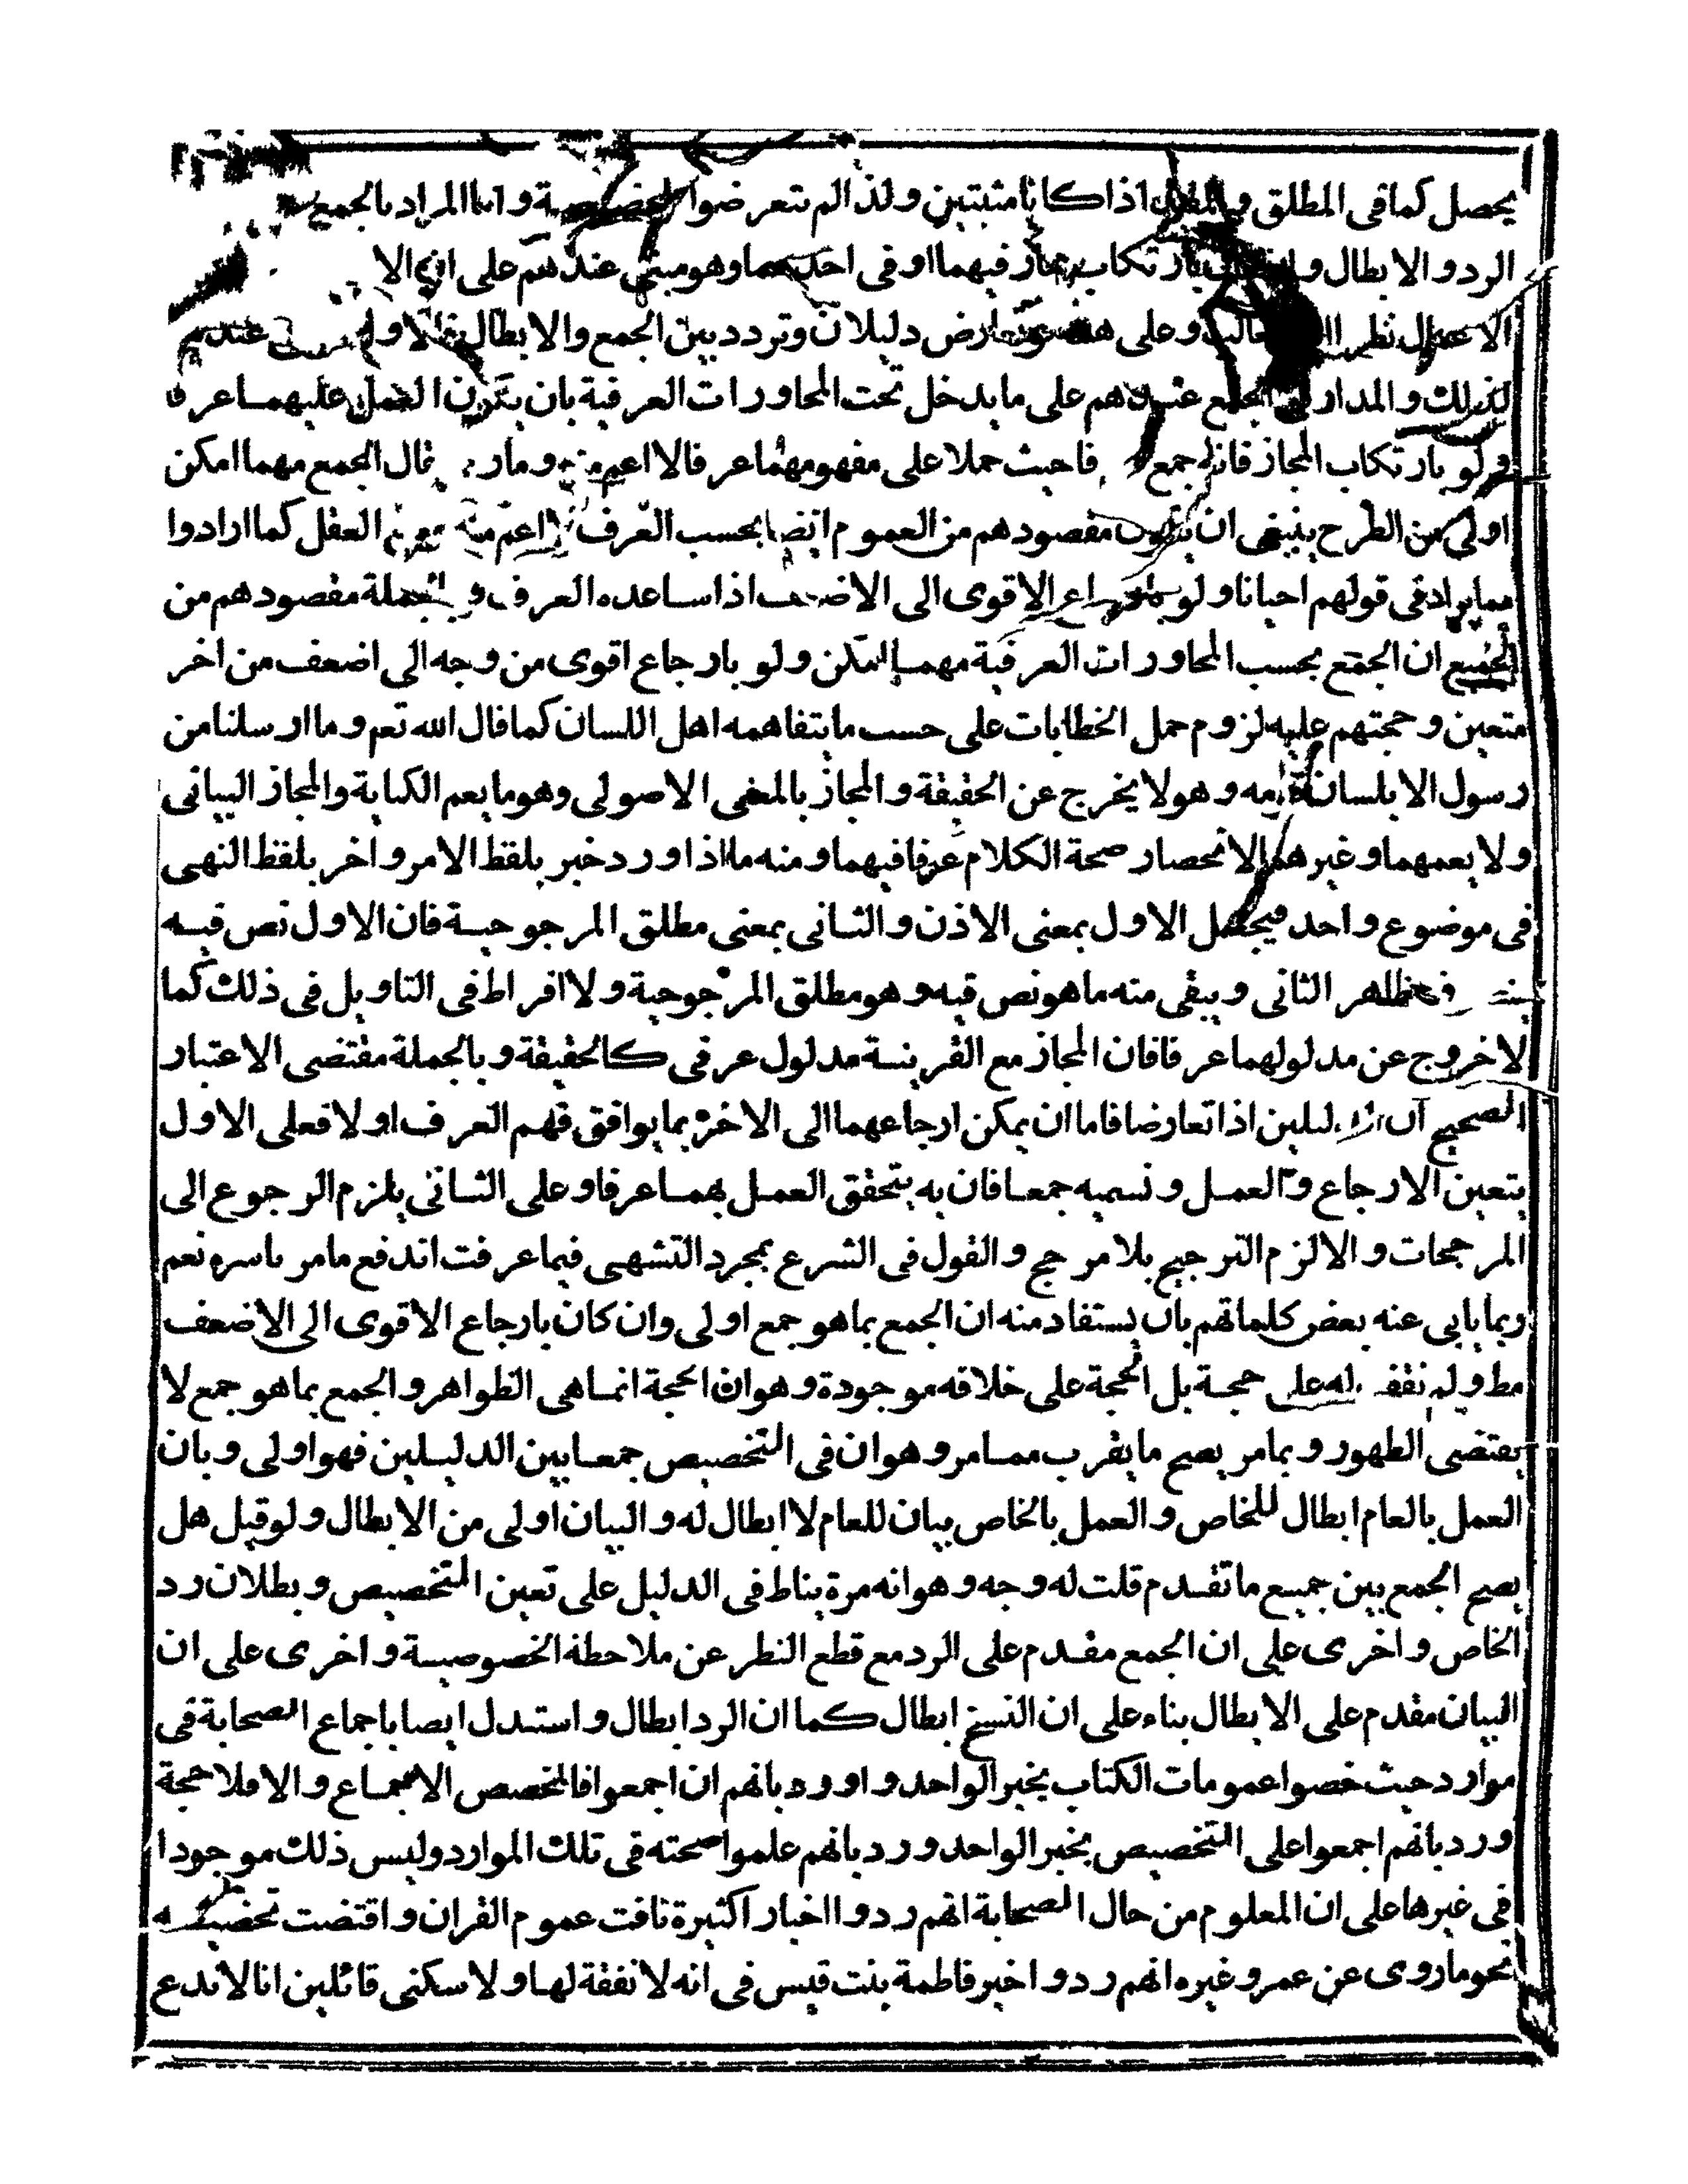 يحصل كما فى المطلق و اذا كانا مثبتين ولذا لم يتعرضوا وانما المراد بالجمع
الرد والابطال و بارتكاب مجاز فيهما او فى احدهما وهو مبنى عندهم على ان الا
الاعمال نظر وعلى تعارض دليلان وتردد بين الجمع والابطال عندهم
لذلك والمدار الجمع عندهم على ما يدخل تحت المحاورات العرفية بان يكون العمل عليهما عرفا
ولو بارتكاب المجاز فانه جمع حملا على مفهومهما عرفا لا اعم منه وما ر قال الجمع مهما امكن
اولى من الطرح ينبغى ان يكون مقصودهم من العموم ايضا بحسب العرف لا اعم منه العقل كما ارادوا
مما يراد فى قولهم احيانا ولو الاقوى الى الاضعف اذا ساعده العرف وبالجملة مقصودهم من
الجميع ان الجمع بحسب المحاورات العرفية مهما امكن ولو بارجاع اقوى من وجه الى اضعف من اخر
متعين وحجتهم عليه لزوم حمل الخطابات على حسب ما يتفاهمه اهل اللسان كما قال الله تعم وما ارسلنا من
رسول الا بلسان قومه وهو لا يخرج عن الحقيقة والمجاز بالمعنى الاصولى وهو ما يعم الكناية والمجاز البيانى
ولا يعمهما وغيرهما لانحصار صحة الكلام عرفا فيهما ومنه ما اذا ورد خبر بلفظ الامر واخر بلفظ النهى
فى موضوع واحد فيحمل الاول بمعنى الاذن والثانى بمعنى مطلق المرجوحية فان الاول نص فيه
ظاهر الثانى ويبقى منه ما هو نص فيه وهو مطلق المرجوحية ولا افراط فى التاويل فى ذلك كما
لا خروج عن مدلولهما عرفا فان المجاز مع القرينة مدلول عرفى كالحقيقة وبالجملة مقتضى الاعتبار
الصحيح ان الدليلين اذا تعارضا فاما ان يمكن ارجاعهما الى الاخر بما يوافق فهم العرف او لا فعلى الاول
يتعين الارجاع والعمل ونسميه جمعا فان به يتحقق العمل بهما عرفا وعلى الثانى يلزم الرجوع الى
المرجحات والا لزم الترجيح بلا مرجح والقول فى الشرع بمجرد التشهى فيما عرفت اندفع ما مر باسره نعم
ربما يابى عنه بعض كلماتهم بان يستفاد منه ان الجمع بما هو جمع اولى وان كان بارجاع الاقوى الى الاضعف
مط ولم نقف له على حجة بل الحجة على خلافه موجودة وهو ان الحجة انما هى الظواهر والجمع بما هو جمع لا
يقتضى الظهور وبما مر يصح ما يقرب مما مر وهو ان فى التخصيص جمعا بين الدليلين فهو اولى وبان
العمل بالعام ابطال للخاص والعمل بالخاص بيان للعام لا ابطال له والبيان اولى من الابطال ولو قيل هل
يصح الجمع بين جميع ما تقدم قلت له وجه وهو انه مرة يناط فى الدليل على تعين التخصيص وبطلان رد
الخاص واخرى على ان الجمع مقدم على الرد مع قطع النظر عن ملاحظة الخصوصية واخرى على ان
البيان مقدم على الابطال بناء على ان النسخ ابطال كما ان الرد ابطال واستدل ايضا باجماع الصحابة فى
موارد حيث خصوا عمومات الكتاب بخبر الواحد واورد بانهم ان اجمعوا فالمخصص الاجماع والا فلا حجة
ورد بانهم اجمعوا على التخصيص بخبر الواحد ورد بانهم علموا صحته فى تلك الموارد وليس ذلك موجودا
فى غيرها على ان المعلوم من حال الصحابة انهم ردوا اخبارا كثيرة نافت عموم القران واقتضت تخصيصه
نحو ما روى عن عمر وغيره انهم ردوا خبر فاطمة بنت قيس فى انه لا نفقة لها ولا سكنى قائلين انا لا ندع